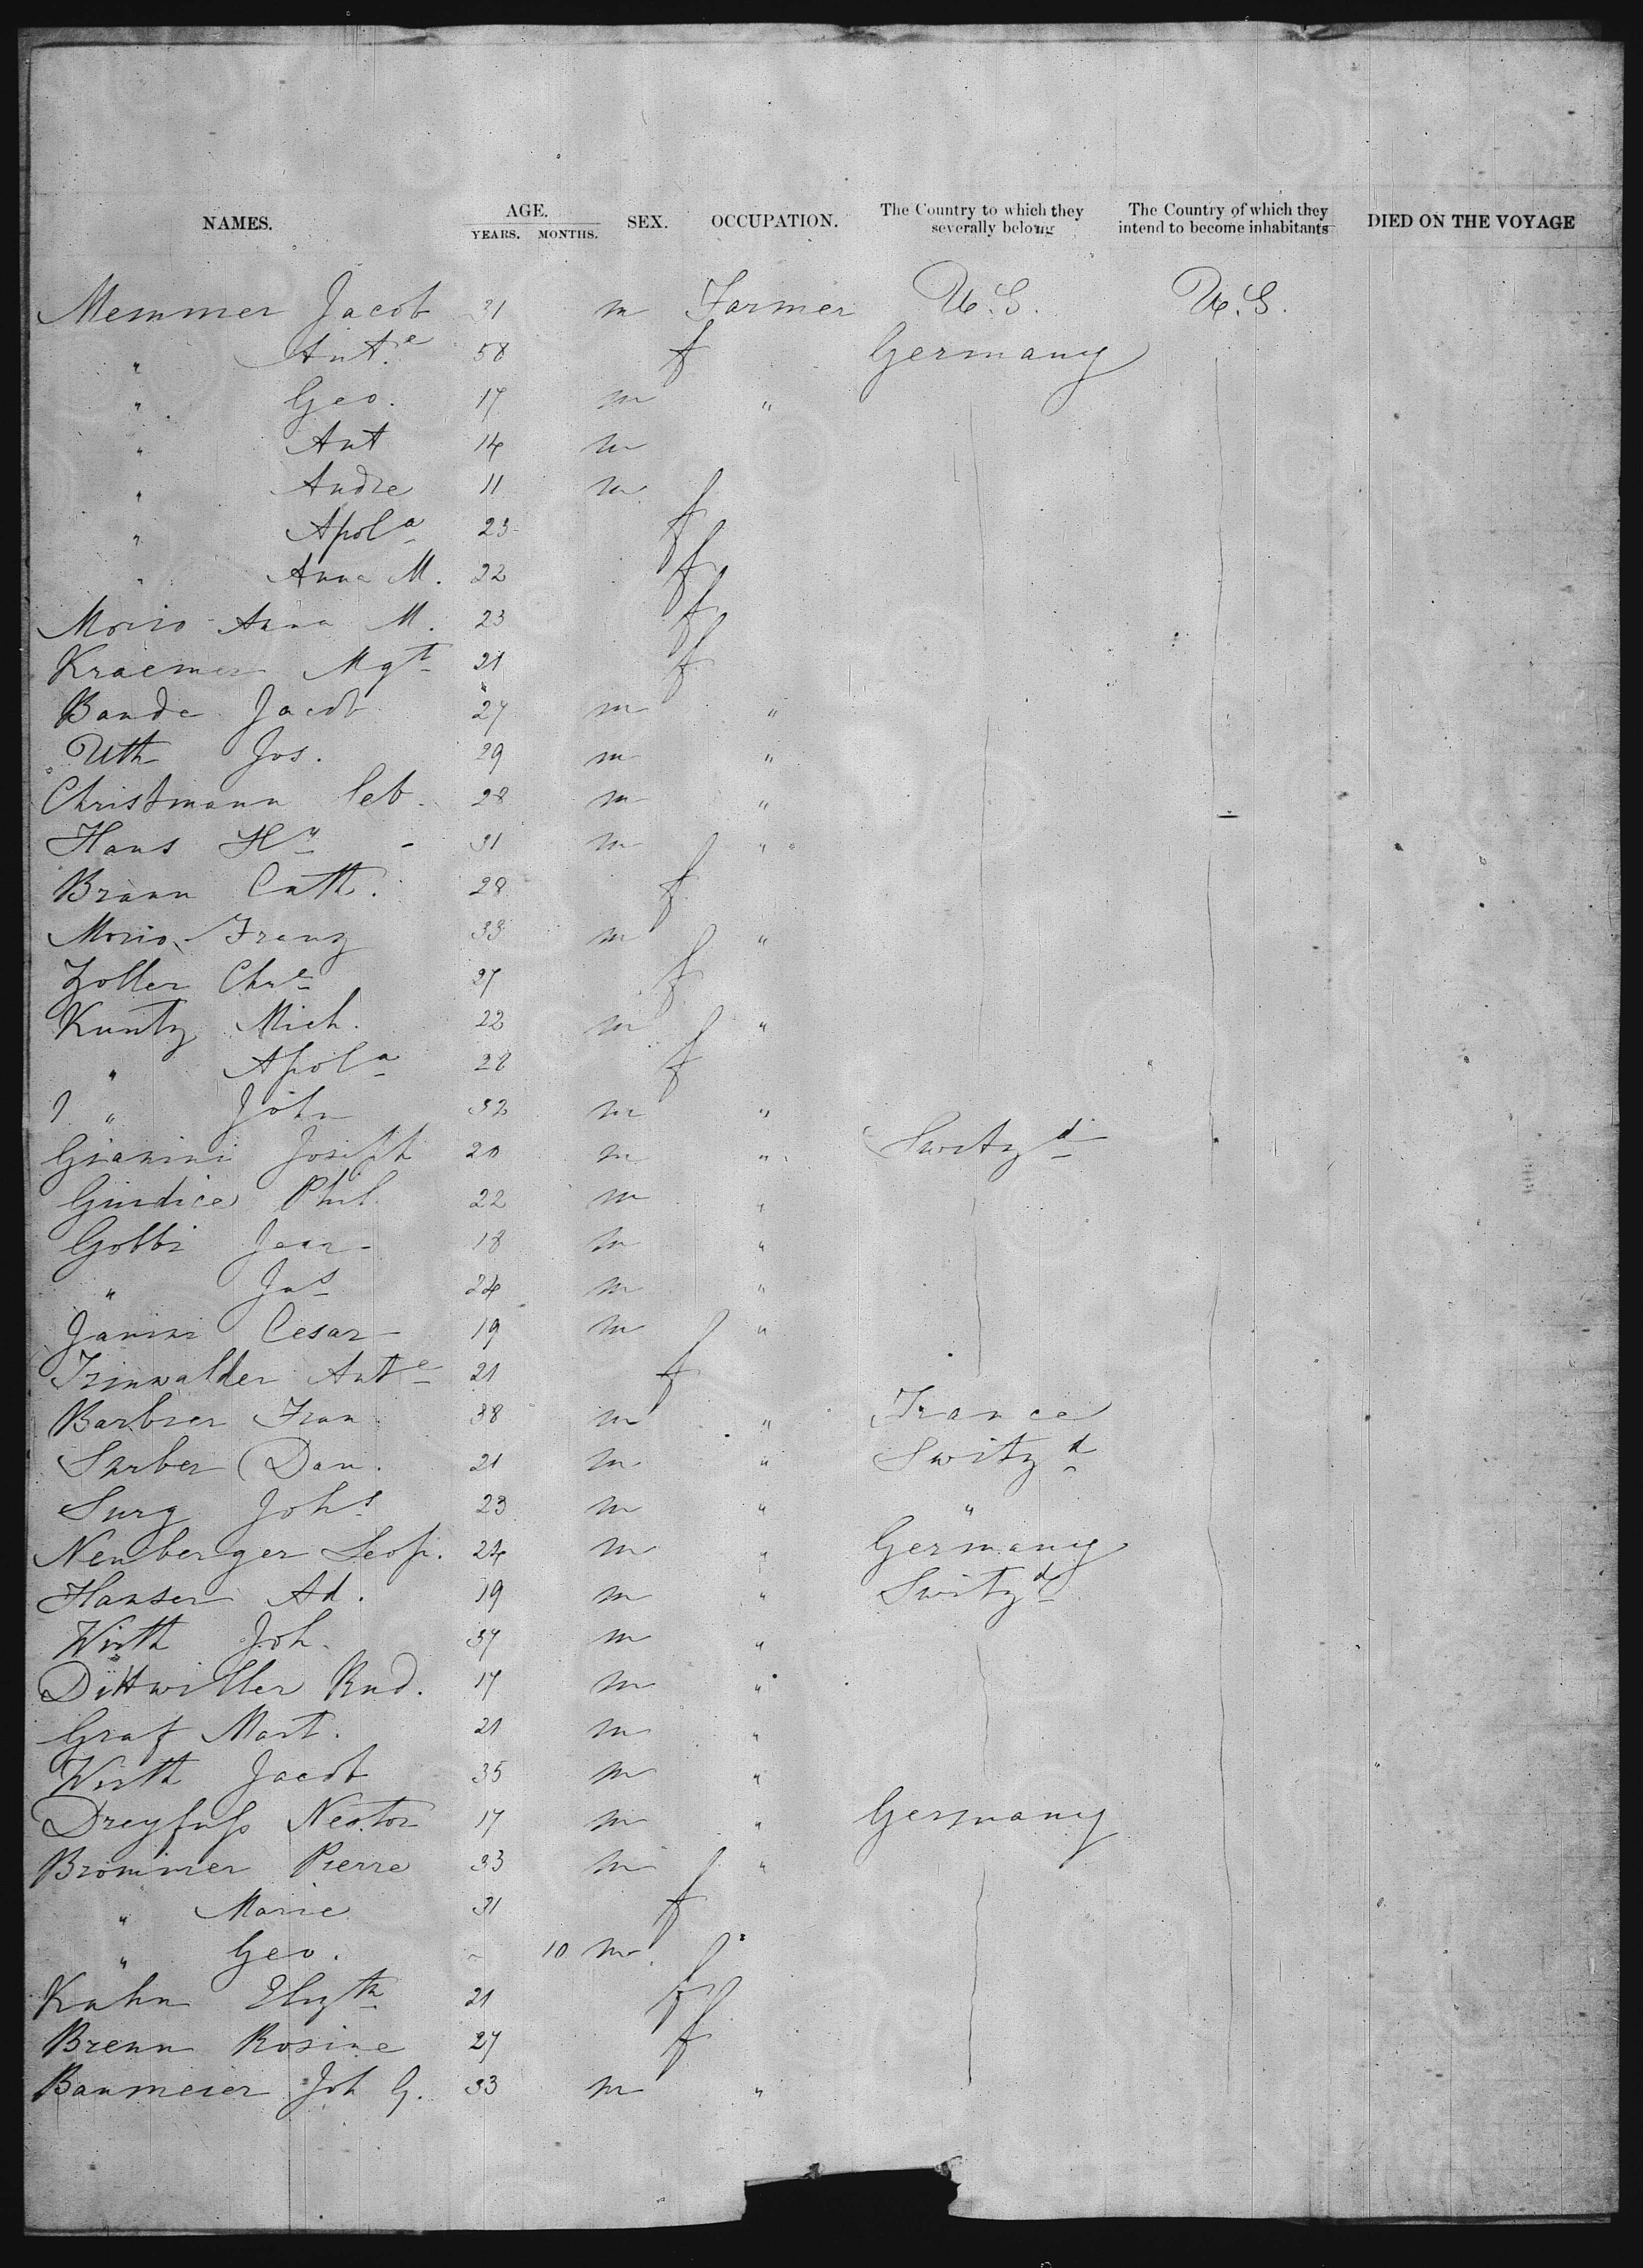 NAMES. AGE. YEARS. MONTHS. SEX. OCCUPATION. The Country to which they severally belong The Country of which they intend to become inhabitants DIED ON THE VOYAGE
Memmer Jacob 31 m Farmer U.S. U.S.
" Ant.e 58 f Germany
" Geo. 17 m "
" Ant 14 m
" Andre 11 m
" Apola 23 f
" Anna M. 22 f
Morio Anna M. 23 f
Kraemer Mgt 21 f
Bande Jacob 27 m "
Uth Jos. 29 m "
Christmann Seb. 28 m "
Hans Hy - 31 m "
Braun Cath. 28 f
Morio Franz 33 m "
Zoller Chre 27 f
Kuntz Mich. 22 m "
" Apola 28 f
" John 32 m "
Gianini Joseph 20 m " Switzd
Giudice Phil. 22 m "
Gobbi Jean 18 m "
" Jas 24 m "
Janini Cesar 19 m "
Irinwalder Ante 21 f
Barbier Fran 38 m " France
Surber Dan. 21 m " Switzd
Surg Johs 23 m " "
Neuberger Leop. 24 m " Germany
Hauser Ad. 19 m " Switzd
Wirth Joh. 37 m "
Dittwiller Rud. 17 m "
Graf Mart. 21 m "
Wirth Jacob 35 m "
Dreyfuss Nestor 17 m " Germany
Brommer Pierre 33 m "
" Marie 31 f
" Geo. - 10 m
Kahn Elizth 21 f
Brenn Rosine 27 f
Baumeier Joh G. 33 m "